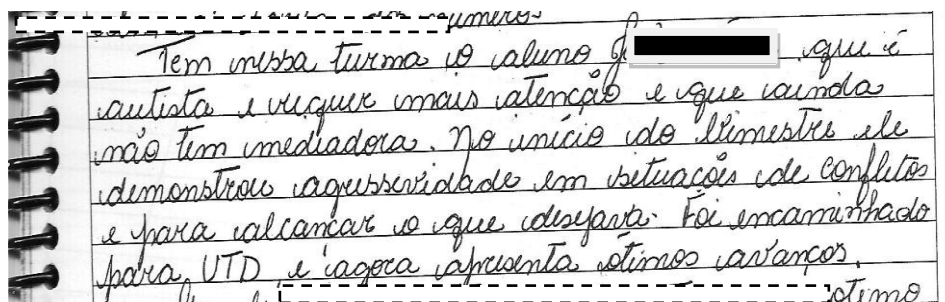 números
Tem nessa turma o aluno que é
autista e requer mais atenção e que ainda
não tem mediadora. No início do bimestre ele
demonstrou agressividade em situações de conflitos
e para alcançar o que desejava. Foi encaminhado
para UTD e agora apresenta ótimos avanços.
ótimo